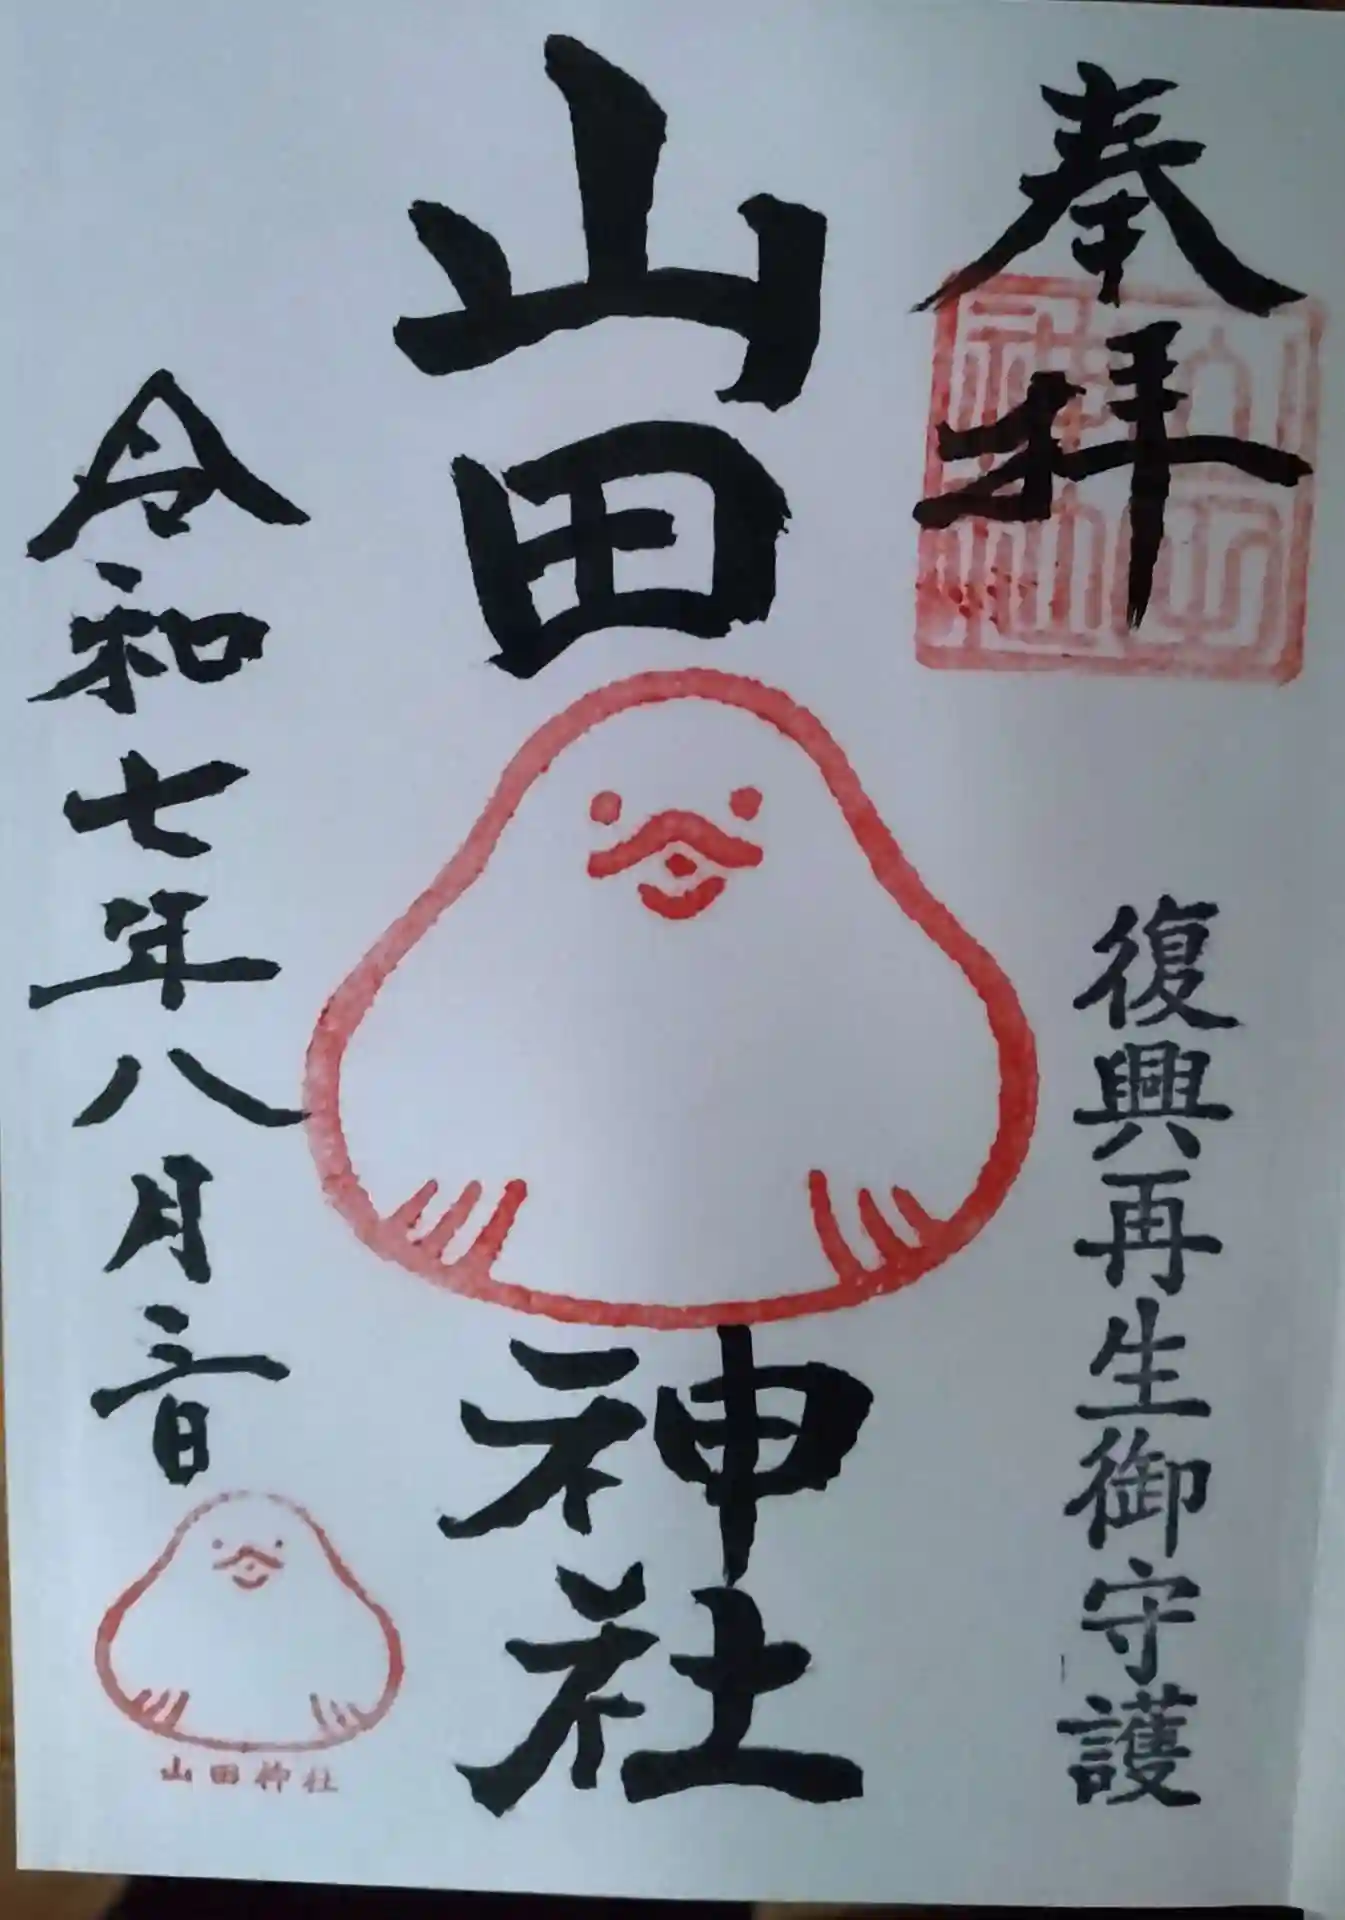 奉拝
復興再生御守護
山田
神社
令和七年八月三日
山田神社